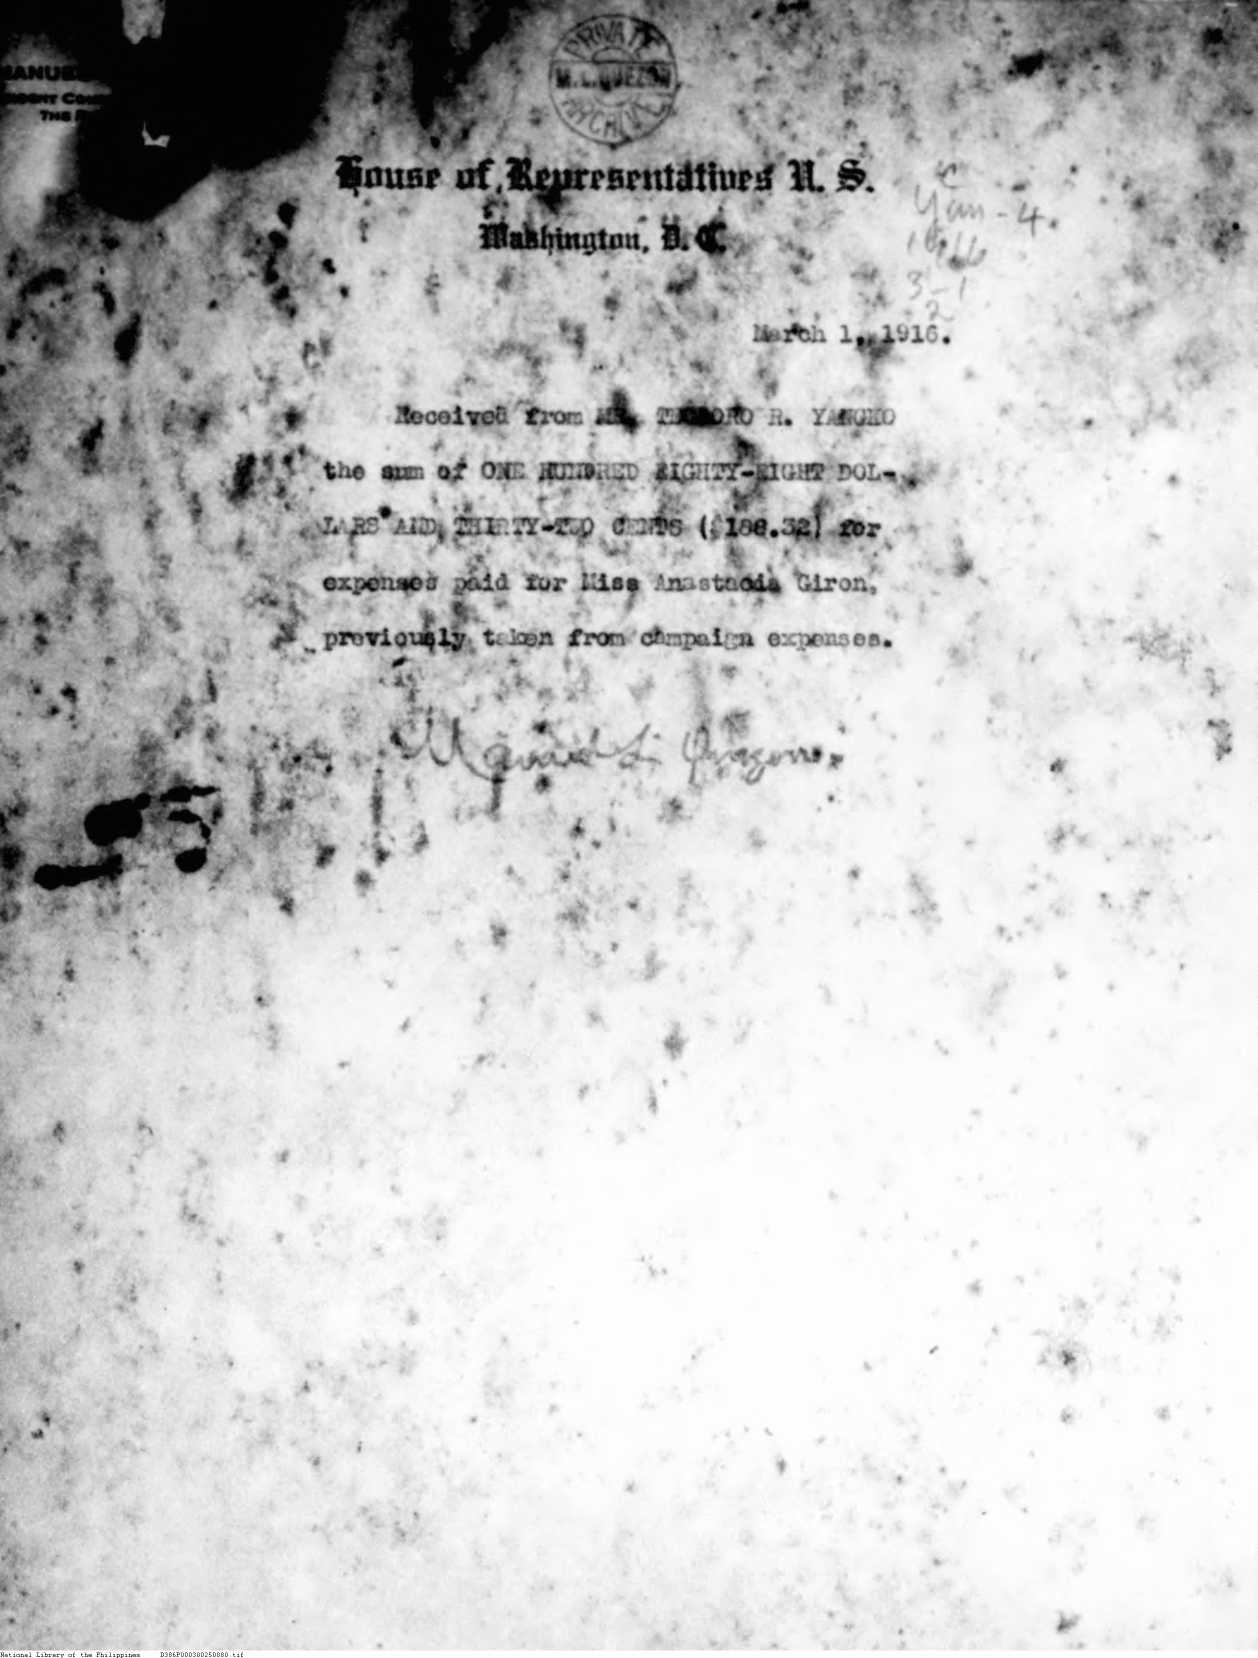 PRIVATE
M. L. QUEZON
ARCHIVE
MANUE
THE
House of Representatives U. S.
Washington, D. C.
C
Yan-4
1916
3-1
2
March 1, 1916.
Received from MR. TEODORO R. YANGKO
the sum of ONE HUNDRED EIGHTY-EIGHT DOL-
LARS AND THIRTY-TWO CENTS ($188.32) for
expenses paid for Miss Anastacia Giron,
previously taken from campaign expenses.
National Library of the Philippines D386P000300250080.tif